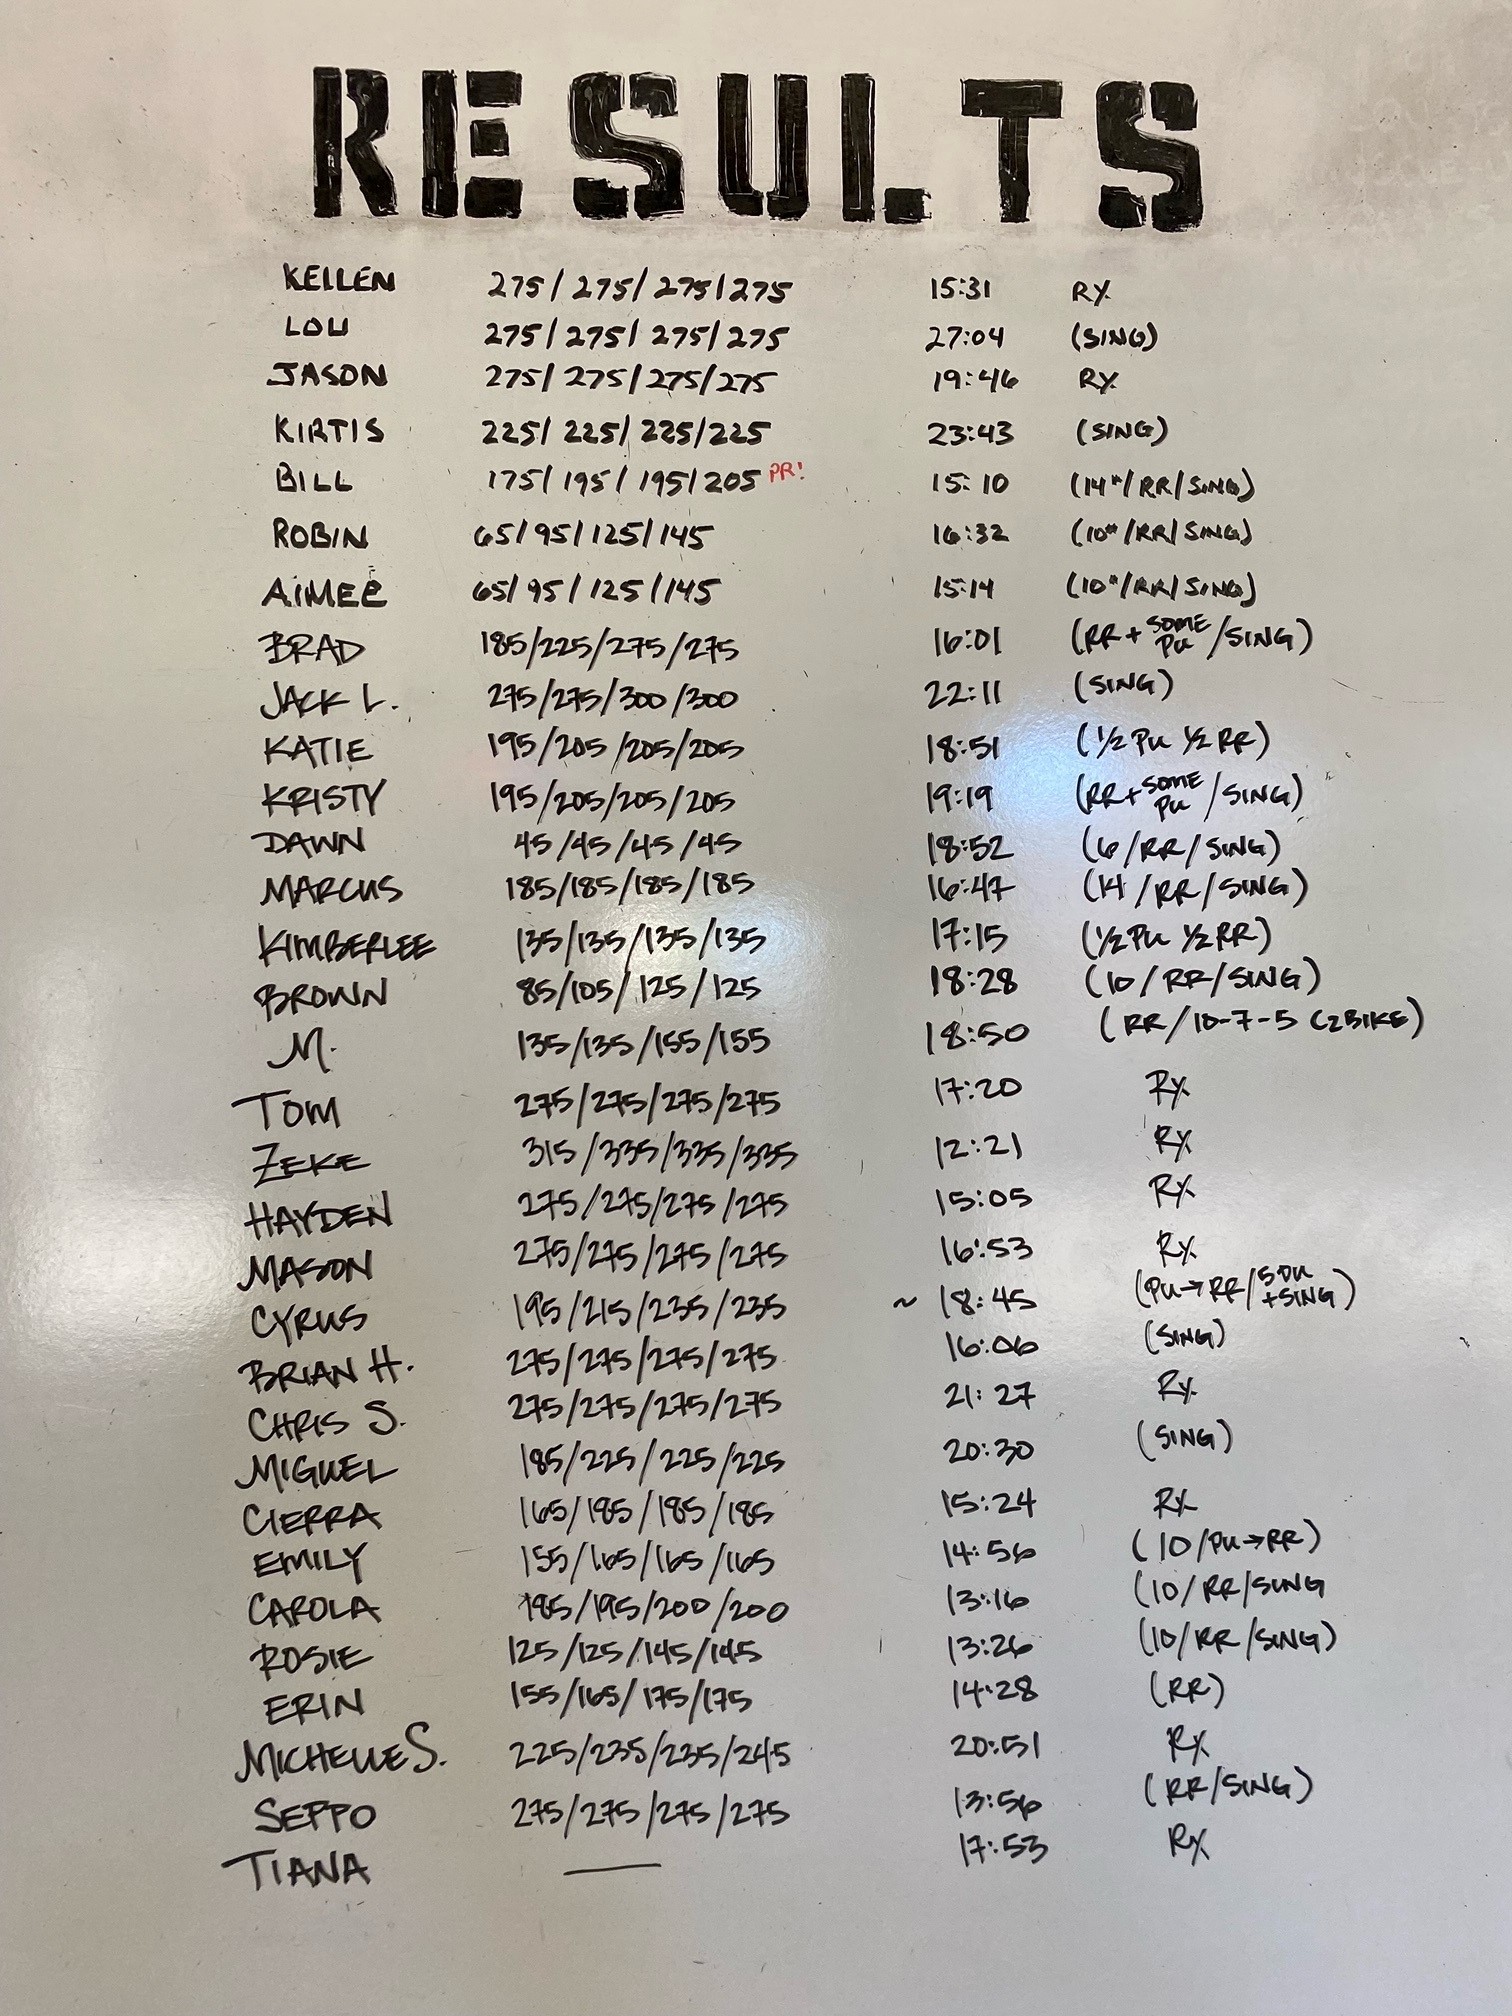 RESULTS
KELLEN 275/275/275/275 15:31 RX
LOU 275/275/275/275 27:04 (SING)
JASON 275/275/275/275 19:46 RX
KIRTIS 225/225/225/225 23:43 (SING)
BILL 175/195/195/205 PR! 15:10 (14"/RR/SING)
ROBIN 65/95/125/145 16:32 (10"/RR/SING)
AIMEE 65/95/125/145 15:14 (10"/RR/SING)
BRAD 185/225/275/275 16:01 (RR+ SOME PU /SING)
JACK L. 275/275/300/300 22:11 (SING)
KATIE 195/205/205/205 18:51 (1/2 PU 1/2 RR)
KRISTY 195/205/205/205 19:19 (RR+ SOME PU /SING)
DAWN 45/45/45/45 18:52 (6/RR/SING)
MARCUS 185/185/185/185 16:47 (14/RR/SING)
KIMBERLEE 135/135/135/135 17:15 (1/2 PU 1/2 RR)
BROWN 85/105/125/125 18:28 (10/RR/SING)
M. 135/135/155/155 18:50 (RR/10-7-5 C2BIKE)
TOM 275/275/275/275 17:20 RX
ZEKE 315/335/335/335 12:21 RX
HAYDEN 275/275/275/275 15:05 RX
MASON 275/275/275/275 16:53 RX
CYRUS 195/215/235/235 ~ 18:45 (PU→RR/5 DU +SING)
BRIAN H. 275/275/275/275 16:06 (SING)
CHRIS S. 275/275/275/275 21:27 RX
MIGUEL 185/225/225/225 20:30 (SING)
CIERRA 165/185/185/185 15:24 RX
EMILY 155/165/165/165 14:56 (10/PU→RR)
CAROLA 185/195/200/200 13:16 (10/RR/SING
ROSIE 125/125/145/145 13:26 (10/RR/SING)
ERIN 155/165/175/175 14:28 (RR)
MICHELLE S. 225/235/235/245 20:51 RX
SEPPO 275/275/275/275 13:56 (RR/SING)
TIANA — 17:53 RX